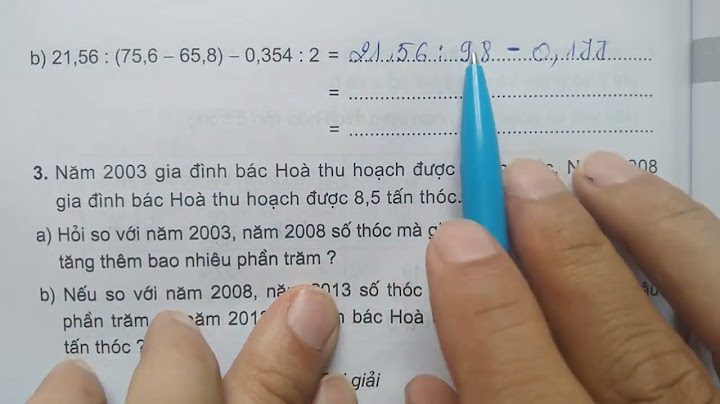 b) 21,56 : (75,6 – 65,8) – 0,354 : 2 = 21,56 : 9,8 – 0,177
=
=
3. Năm 2003 gia đình bác Hoà thu hoạch được 008
gia đình bác Hoà thu hoạch được 8,5 tấn thóc.
a) Hỏi so với năm 2003, năm 2008 số thóc mà
tăng thêm bao nhiêu phần trăm ?
b) Nếu so với năm 2008, 2013 số thóc
phần trăm bác Hoà
tấn thóc ?
giải